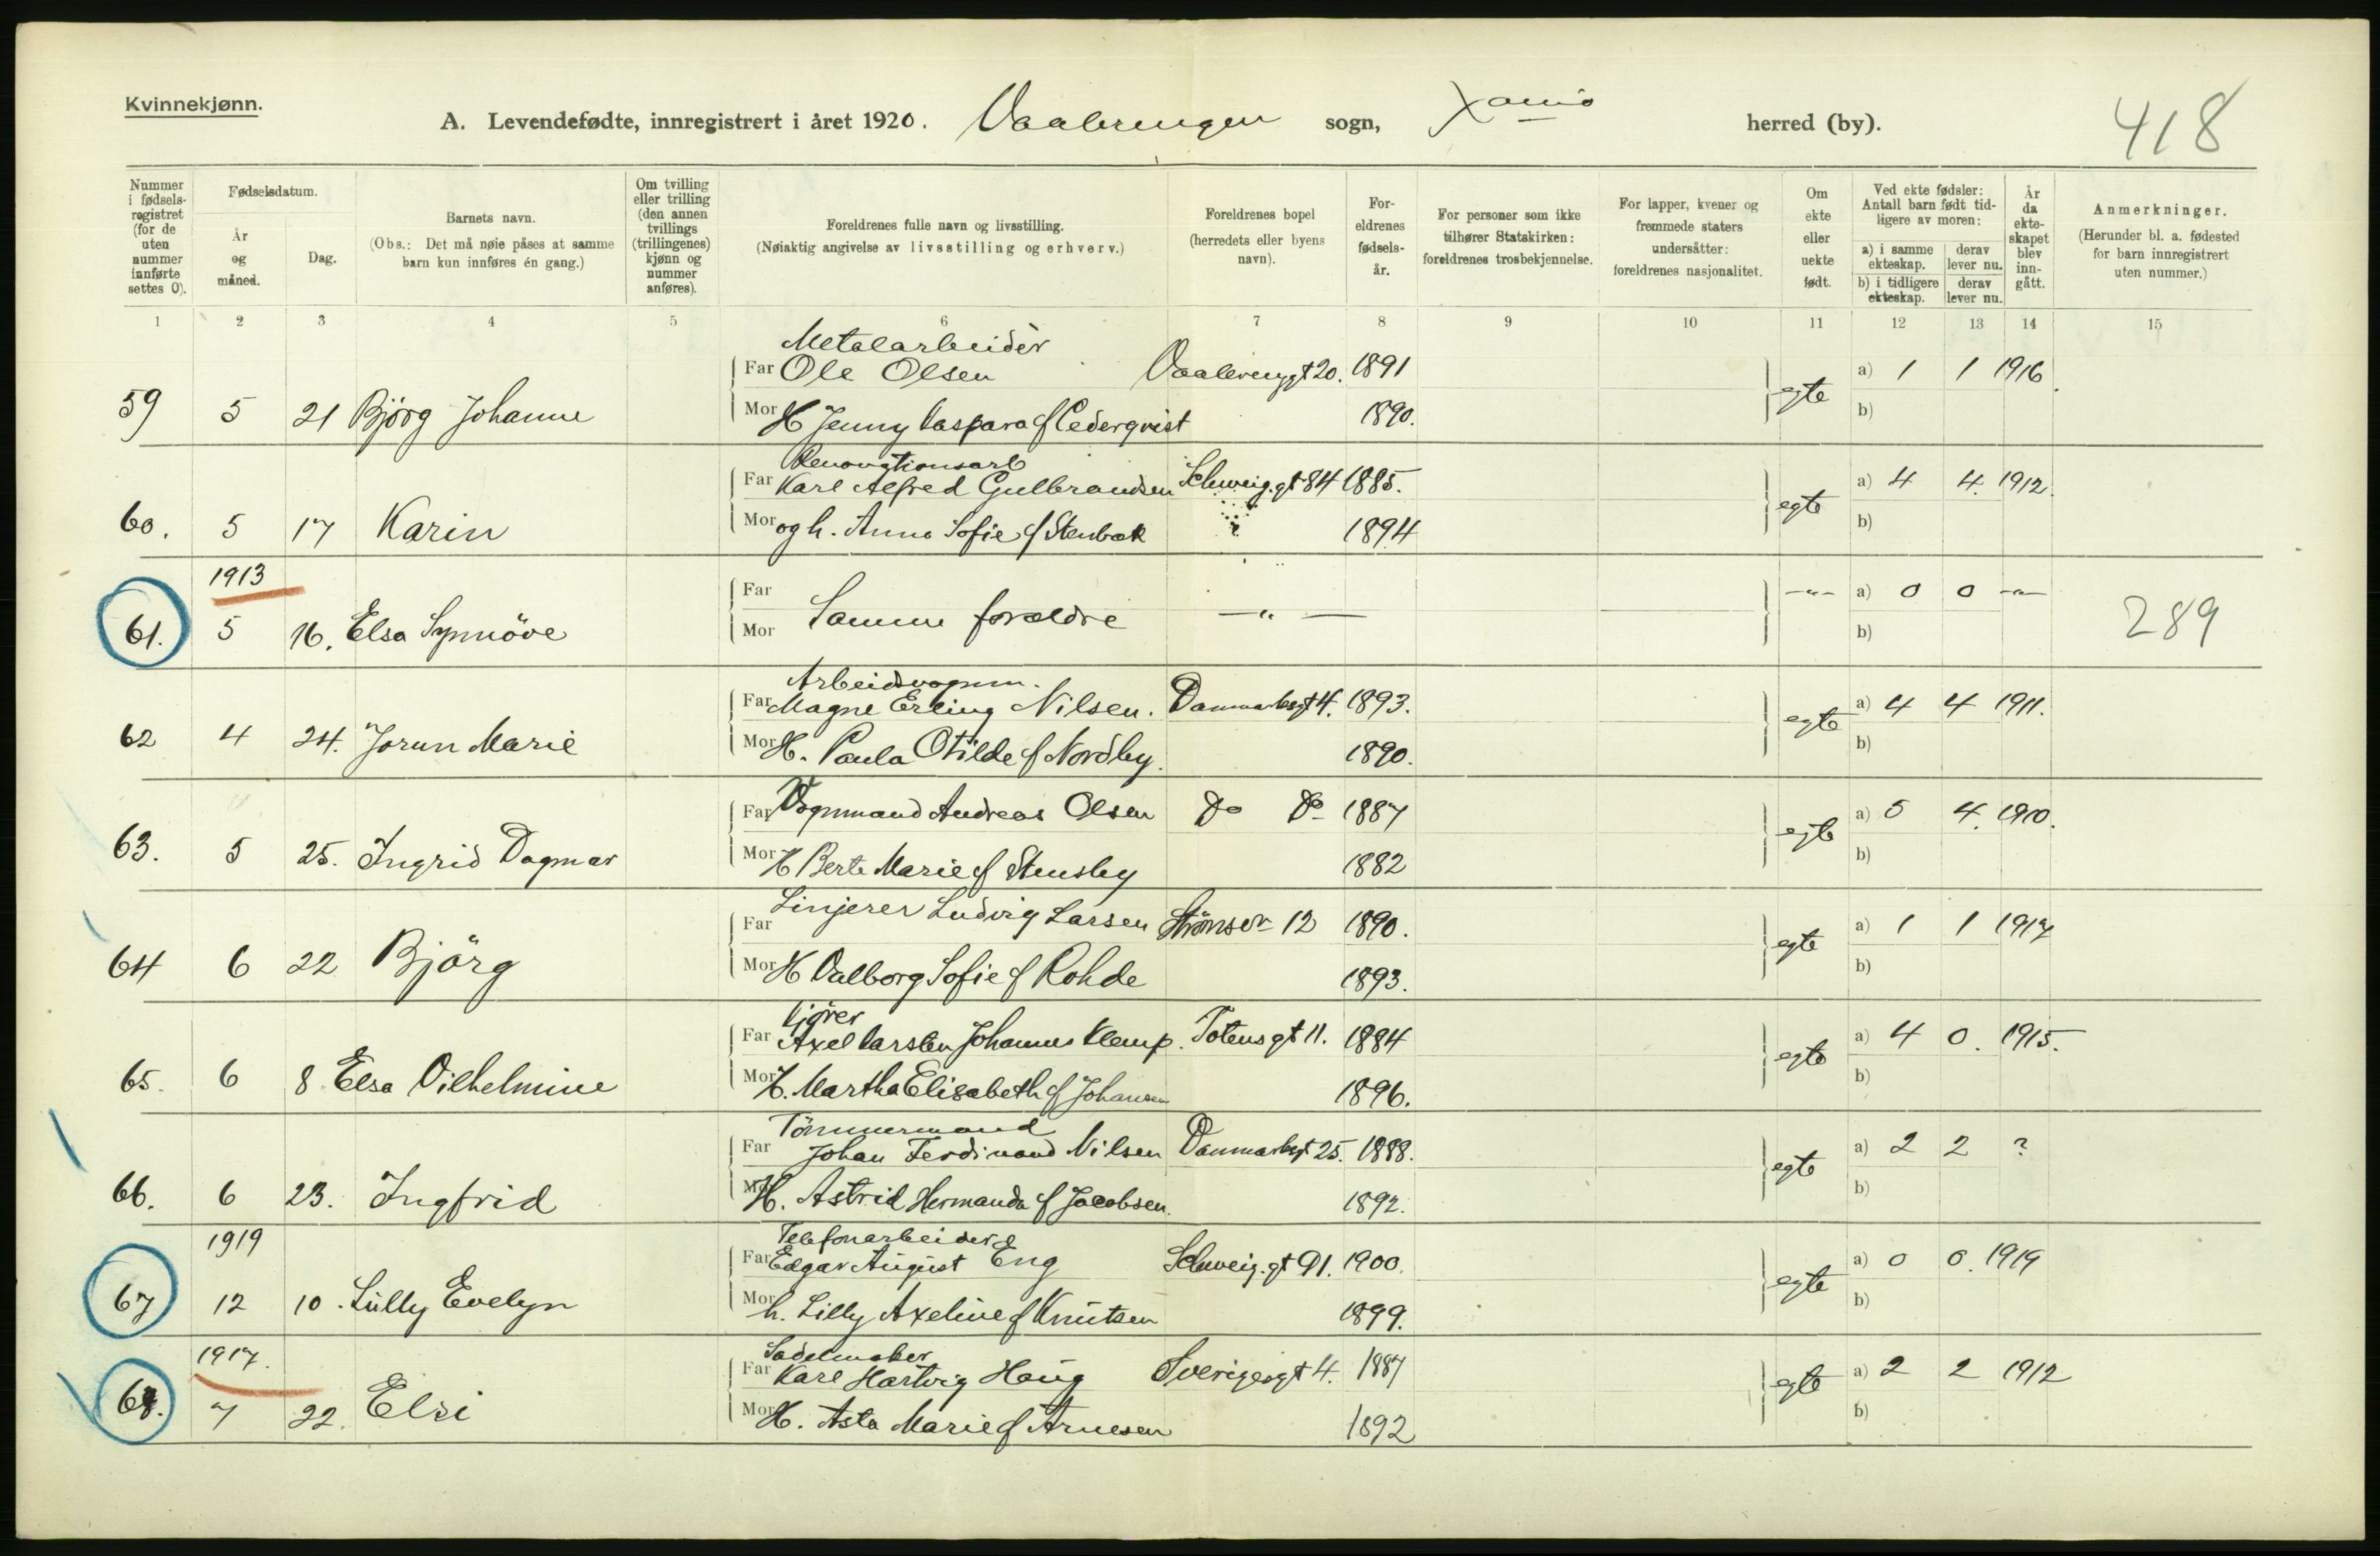 Kvinnekjønn.
A. Levendefødte, innregistrert i året 1920. Vaalerengen sogn, Xania herred (by). 418
Nummer i fødsels-registret (for de uten nummer innførte settes 0).
Fødselsdatum.
År og måned.
Dag.
Barnets navn.
(Obs.: Det må nøie påses at samme barn kun innføres én gang.)
Om tvilling eller trilling (den annen tvillings (trillingenes) kjønn og nummer anføres).
Foreldrenes fulle navn og livsstilling.
(Nøiaktig angivelse av livsstilling og erhverv.)
Foreldrenes bopel (herredets eller byens navn).
For-eldrenes fødsels-år.
For personer som ikke tilhører Statskirken: foreldrenes trosbekjennelse.
For lapper, kvener og fremmede staters undersåtter: foreldrenes nasjonalitet.
Om ekte eller uekte født.
Ved ekte fødsler: Antall barn født tid-ligere av moren:
a) i samme ekteskap. derav lever nu.
b) i tidligere ekteskap. derav lever nu.
År da ekte-skapet blev inn-gått.
Anmerkninger.
(Herunder bl. a. fødested for barn innregistrert uten nummer.)
1 2 3 4 5 6 7 8 9 10 11 12 13 14 15
Metalarbeider
Far Ole Olsen Vaalerenggt 20. 1891 a) 1 1 1916
59 5 21 Bjørg Johanne Mor H Jenny Caspara f Cederqvist 1890. egte b)
Renovationsarb
Far Karl Alfred Gulbrandsen Schweig.gt 84 1885. a) 4 4. 1912.
60. 5 17 Karin Mor og h. Anna Sofie f Stenbæk 1894 egte b)
1913
Far a) 0 0 -"-
61. 5 16. Elsa Synnöve Mor Samme forældre -"- -"- b) 289
Arbeidsvognm.
Far Magne Erling Nilsen. Danmarksgt 4. 1893. a) 4 4 1911.
62 4 24. Jorun Marie Mor H. Paula Otilde f Nordby. 1890. egte b)
Far Vognmand Andreas Olsen Do Do 1887 a) 5 4. 1910.
63. 5 25. Ingrid Dagmar Mor H Berte Marie f Stensby 1882 egte b)
Far Linjerer Ludvig Larsen Strömsv 12 1890. a) 1 1 1917
64 6 22 Björg Mor H Valborg Sofie f Rohde 1893. egte b)
Kjörer
Far Axel Carsten Johannes Klemp. Totensgt 11. 1884 a) 4 0. 1915.
65. 6 8 Elsa Vilhelmine Mor H. Martha Elisabeth f Johansen 1896. egte b)
Tömmermand
Far Johan Ferdinand Nilsen Danmarksgt 25. 1888. a) 2 2 ?
66. 6 23. Ingfrid Mor H. Astrid Hermanda f Jacobsen. 1892. egte b)
1919
Telefonarbeider
Far Edgar August Eng Schweig.gt 91. 1900. a) 0 0. 1919
67 12 10. Lilly Evelyn Mor h. Lilly Axeline f Knutsen 1899. egte b)
1917.
Sadelmaker
Far Karl Hartvig Haug Sverigesgt 4. 1887 a) 2 2 1912
68. 7 22. Elsi Mor H. Asta Marie f Arnesen 1892 egte b)